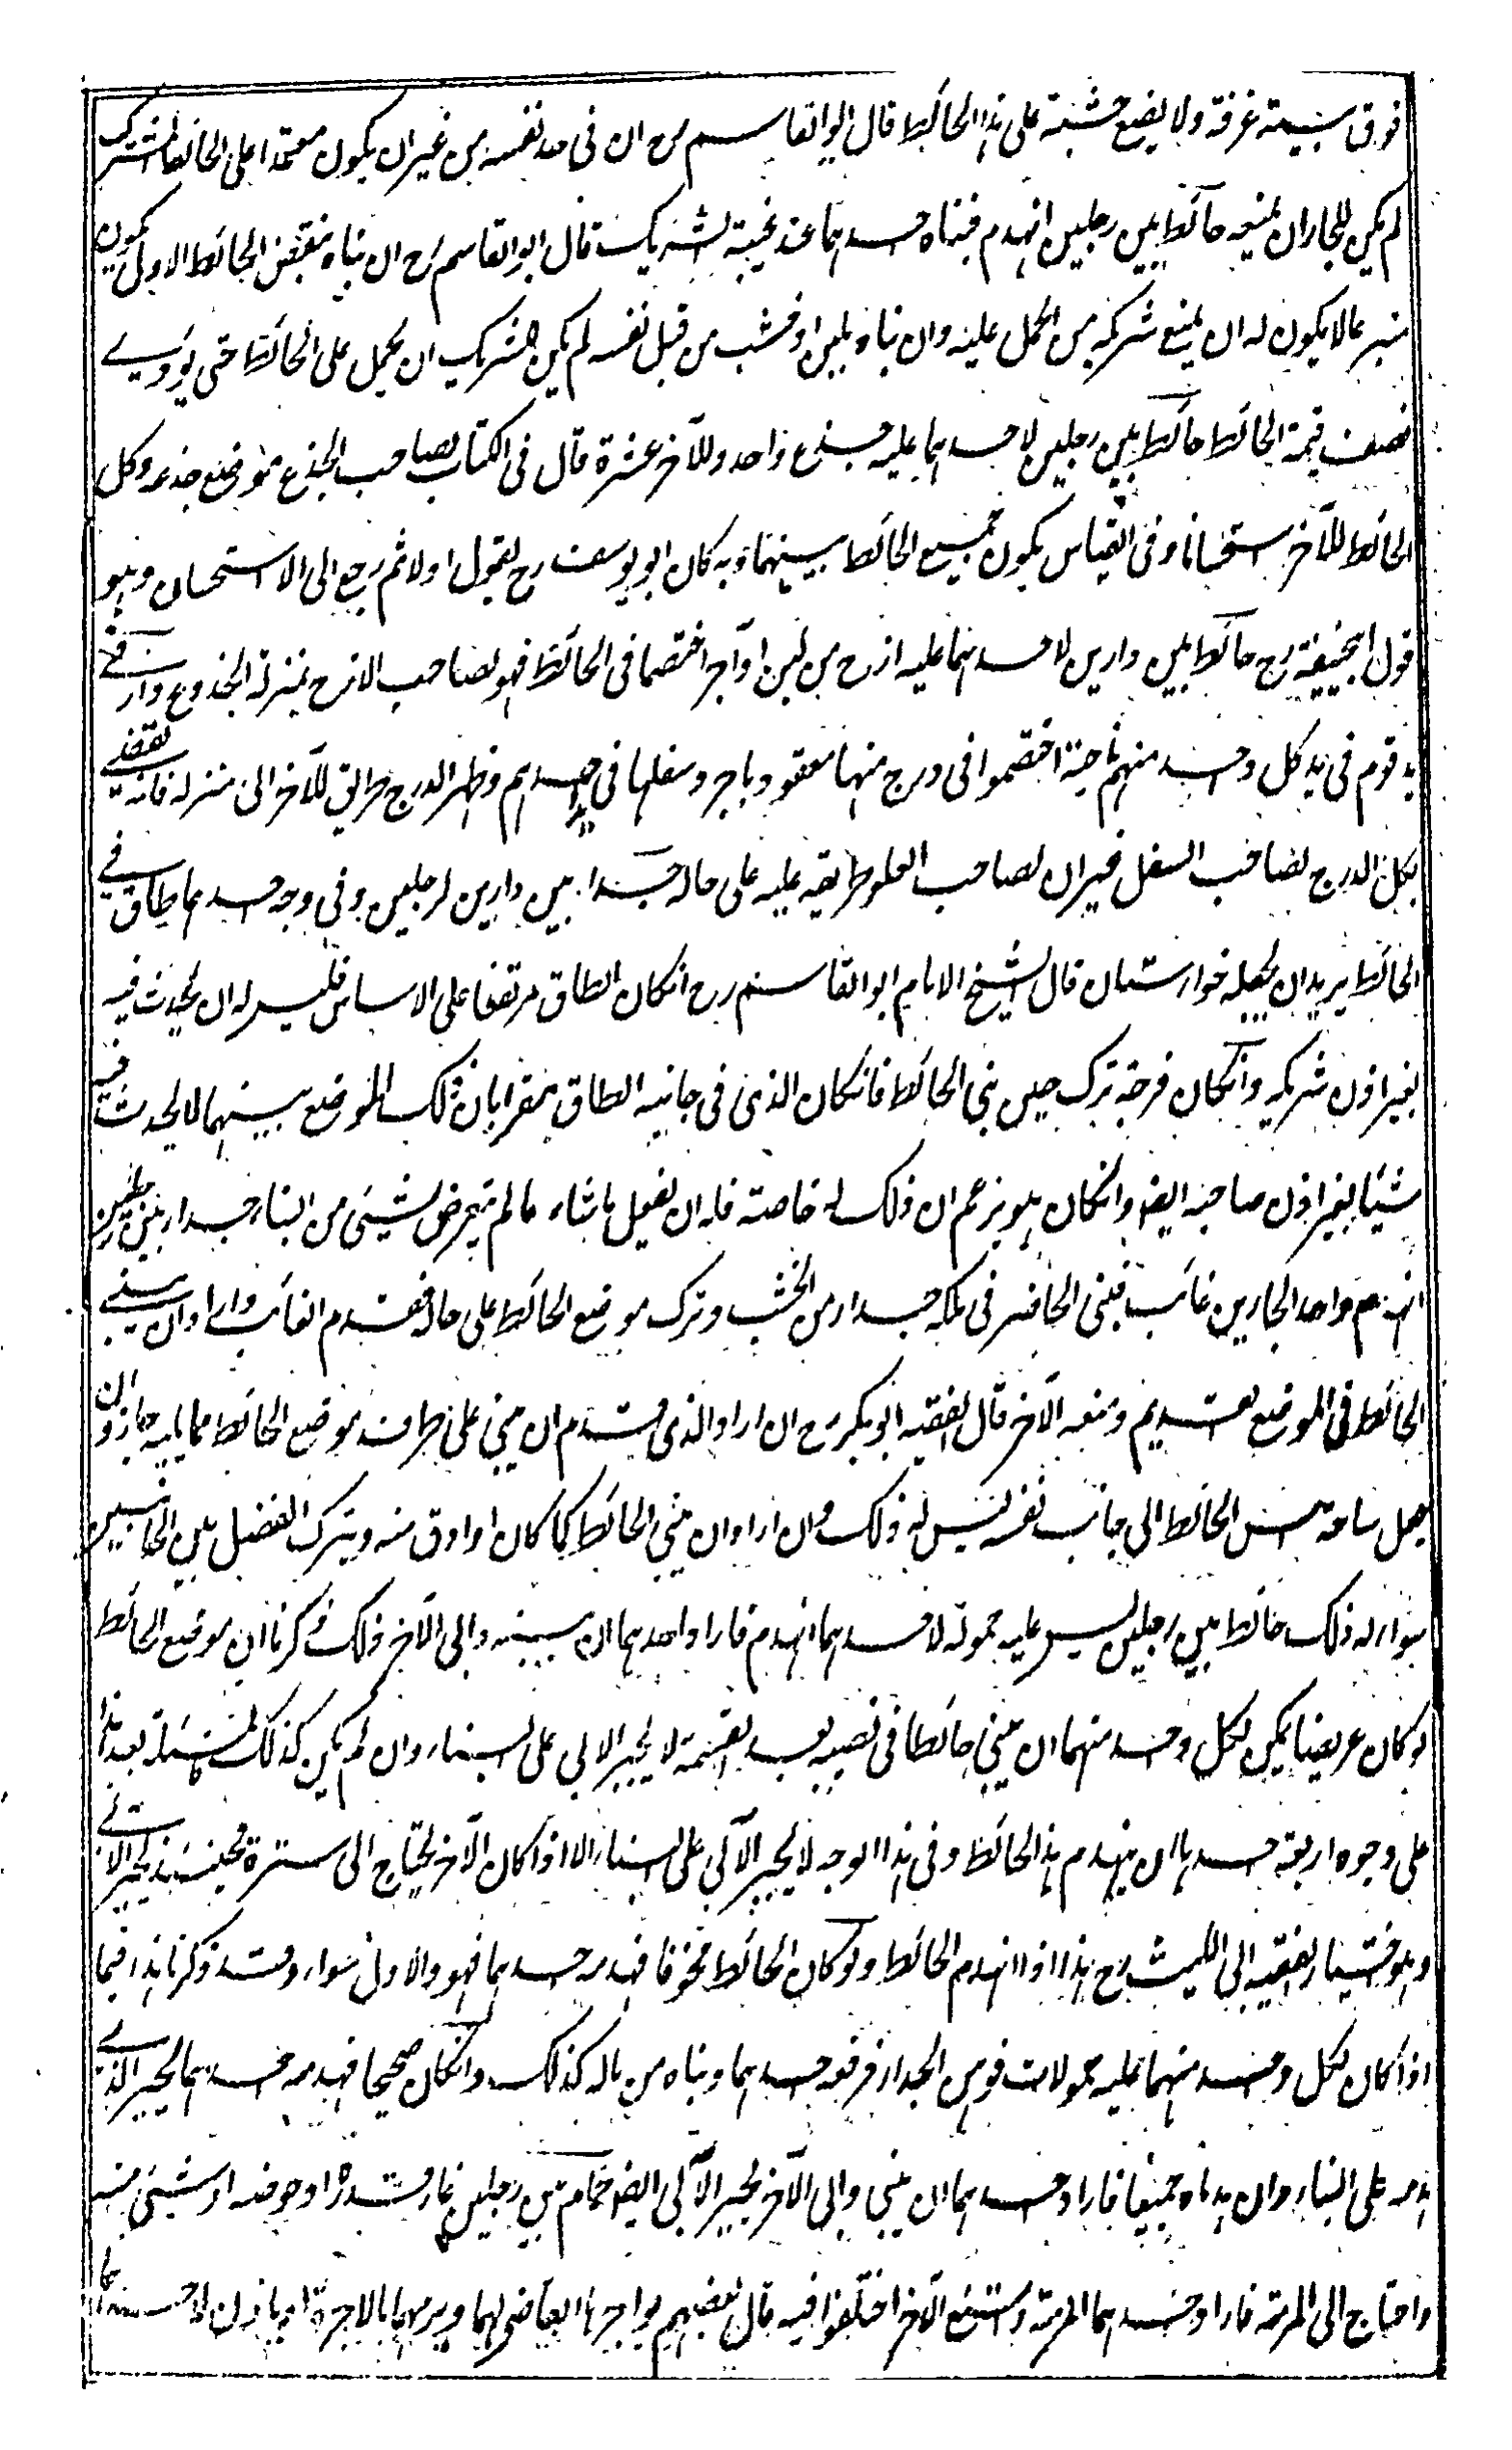 فوق بيته غرفة ولا يضع خشبة على هذا الحائط قال ابو القاسم رح ان فى حد نفسه من غير ان يكون معتمدا على الحائط المشترك
لم يكن للجار ان يمنعه حائط بين رجلين انهدم فبناه احدهما عند غيبة الشريك قال ابو القاسم رح ان بناه بنقض الحائط الاول يكون
متبرعا لا يكون له ان يمنع شريكه من الحمل عليه وان بناه بلبن او خشب من قبل نفسه لم يكن للشريك ان يحمل على الحائط حتى يؤدى
نصف قيمة الحائط حائط بين رجلين لاحدهما عليه جذع واحد وللآخر عشرة قال فى الكتاب لصاحب الجذع موضع جذعه وكل
الحائط للآخر استحسانا وفى القياس يكون جميع الحائط بينهما وبه كان ابو يوسف رح يقول اولا ثم رجع الى الاستحسان وهو
قول ابيحنيفة رح حائط بين دارين لاحدهما عليه ازج من لبن او آجر اختصما فى الحائط فهو لصاحب الازج بمنزلة الجذوع دار فى
يد قوم فى يد كل واحد منهم ناحية اختصموا فى درج منها معقود باجر وسفلها فى يد احدهم وظهر الدرج طريق للآخر الى منزله فانه يقضى
بكل الدرج لصاحب السفل غير ان لصاحب العلو طريقه عليه على حاله جدار بين دارين لرجلين وفى وجه احدهما طاق فى
الحائط يريد ان يجعله خوارستان قال الشيخ الامام ابو القاسم رح انكان الطاق مرتفعا على الاساس فليس له ان يحدث فيه
بغير اذن شريكه وانكان فرجة ترك حين بنى الحائط فانكان الذى فى جانبه الطاق يمقر بان ذلك الموضع بينهما لا يحدث فيه
شيئا بغير اذن صاحبه ايضا وانكان هو يزعم ان ذلك له خاصته فله ان يفعل ما شاء ما لم يتعرض لشيئ من البناء جدار بين رجلين
انهدم واحد الجارين غائب فبنى الحاضر فى ملكه جدار من الخشب وترك موضع الحائط على حاله فقدم الغائب واراد ان يبنى
الحائط فى الموضع القديم ومنعه الآخر قال الفقيه ابو بكر رح ان اراد الذى قدم ان يبنى على طرف موضع الحائط مما يليه جاز وان
جعل ساحة اس الحائط الى جانب نفسه ليس له ذلك وان اراد ان يبنى الحائط كما كان او ادق منه ويترك الفضل بين الجانبين
سواء له ذلك حائط بين رجلين ليس عليه حمولة لاحدهما انهدم فاراد احدهما ان يبنيه وابى الآخر ذلك ذكرنا ان موضع الحائط
لو كان عريضا يمكن لكل واحد منهما ان يبنى حائطا فى نصيبه بعد القسمة لا يجبر الابى على البناء وان لم يكن كذلك المسئلة بعد هذا
على وجوه اربعة احدها ان ينهدم هذا الحائط وفى هذا الوجه لا يجبر الآبى على البناء الا اذا كان الآخر يحتاج الى سترة فحينئذ يجبر الابى
وهو اختيار الفقيه ابى الليث رح هذا اذا انهدم الحائط ولو كان الحائط مخوفا فهدمه احدهما فهو والاول سواء وقد ذكرنا هذا فيما
اذا كان لكل واحد منهما عليه حمولات فوهن الجدار فرفعه احدهما وبناه من ماله كذلك وانكان صحيحا فهدمه احدهما يجبر الذى
هدمه على البناء وان هدماه جميعا فاراد احدهما ان يبنى وابى الآخر يجبر الآبى ايضا حمام بين رجلين غار قدرها او حوضه او شيئ منه
واحتاج الى المرمة فاراد احدهما المرمة وامتنع الآخر اختلفوا فيه قال بعضهم يواجرها القاضى لهما ويرمها بالاجرة او ياذن لاحدهما